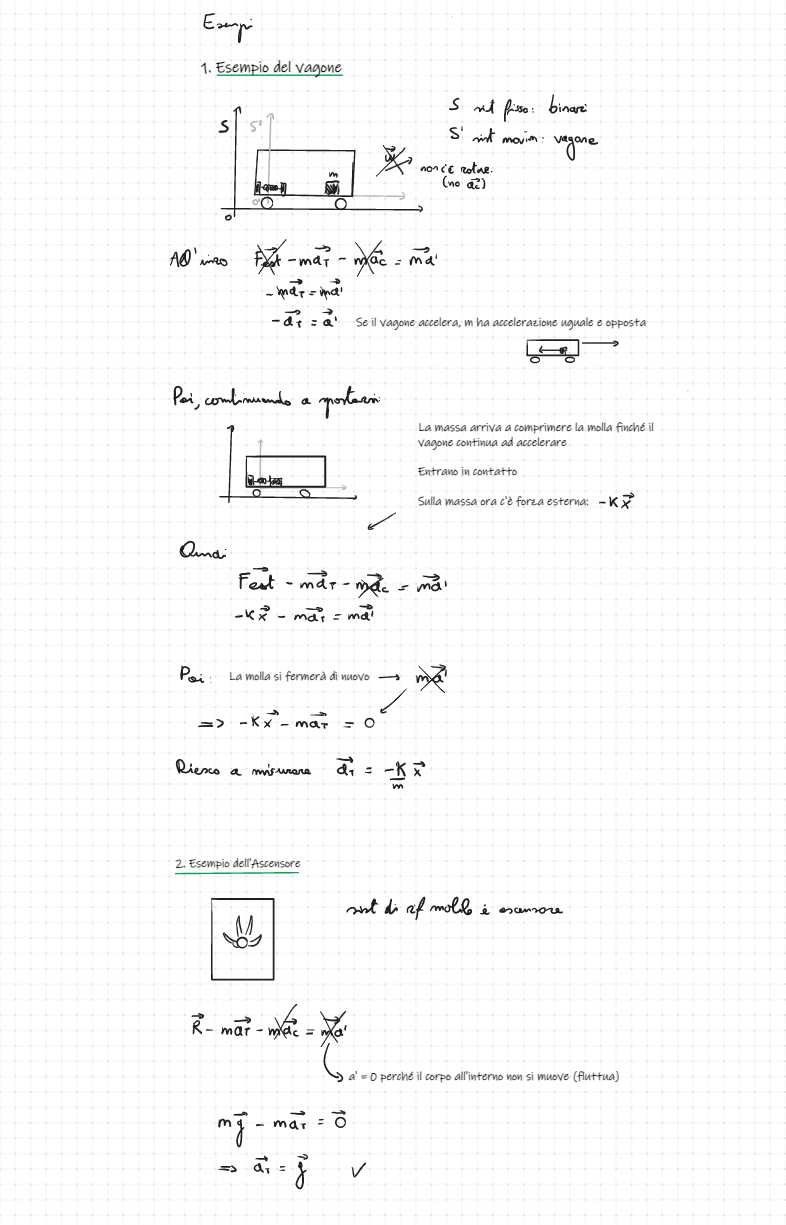 Esempi
1. Esempio del Vagone
S S'
S sist fisso: binari
S' sist movim: vagone
m
ω⃗
non c'è rotaz.
(no a⃗c)
O' 
O
All'inizio F⃗est - ma⃗T - ma⃗c = ma⃗'
- ma⃗T = ma⃗'
- a⃗T = a⃗' Se il vagone accelera, m ha accelerazione uguale e opposta
Poi, continuando a spostarsi
La massa arriva a comprimere la molla finché il
vagone continua ad accelerare
Entrano in contatto
Sulla massa ora c'è forza esterna: -Kx⃗
Quindi
F⃗est - ma⃗T - ma⃗c = ma⃗'
-Kx⃗ - ma⃗T = ma⃗'
Poi: La molla si fermerà di nuovo → ma⃗'
=> -Kx⃗ - ma⃗T = 0
Riesco a misurare a⃗T = -K/m x⃗
2. Esempio dell'Ascensore
sist di rif mobile è ascensore
R⃗ - ma⃗T - ma⃗c = ma⃗'
a' = 0 perché il corpo all'interno non si muove (fluttua)
mg⃗ - ma⃗T = 0⃗
=> a⃗T = g⃗ ✓